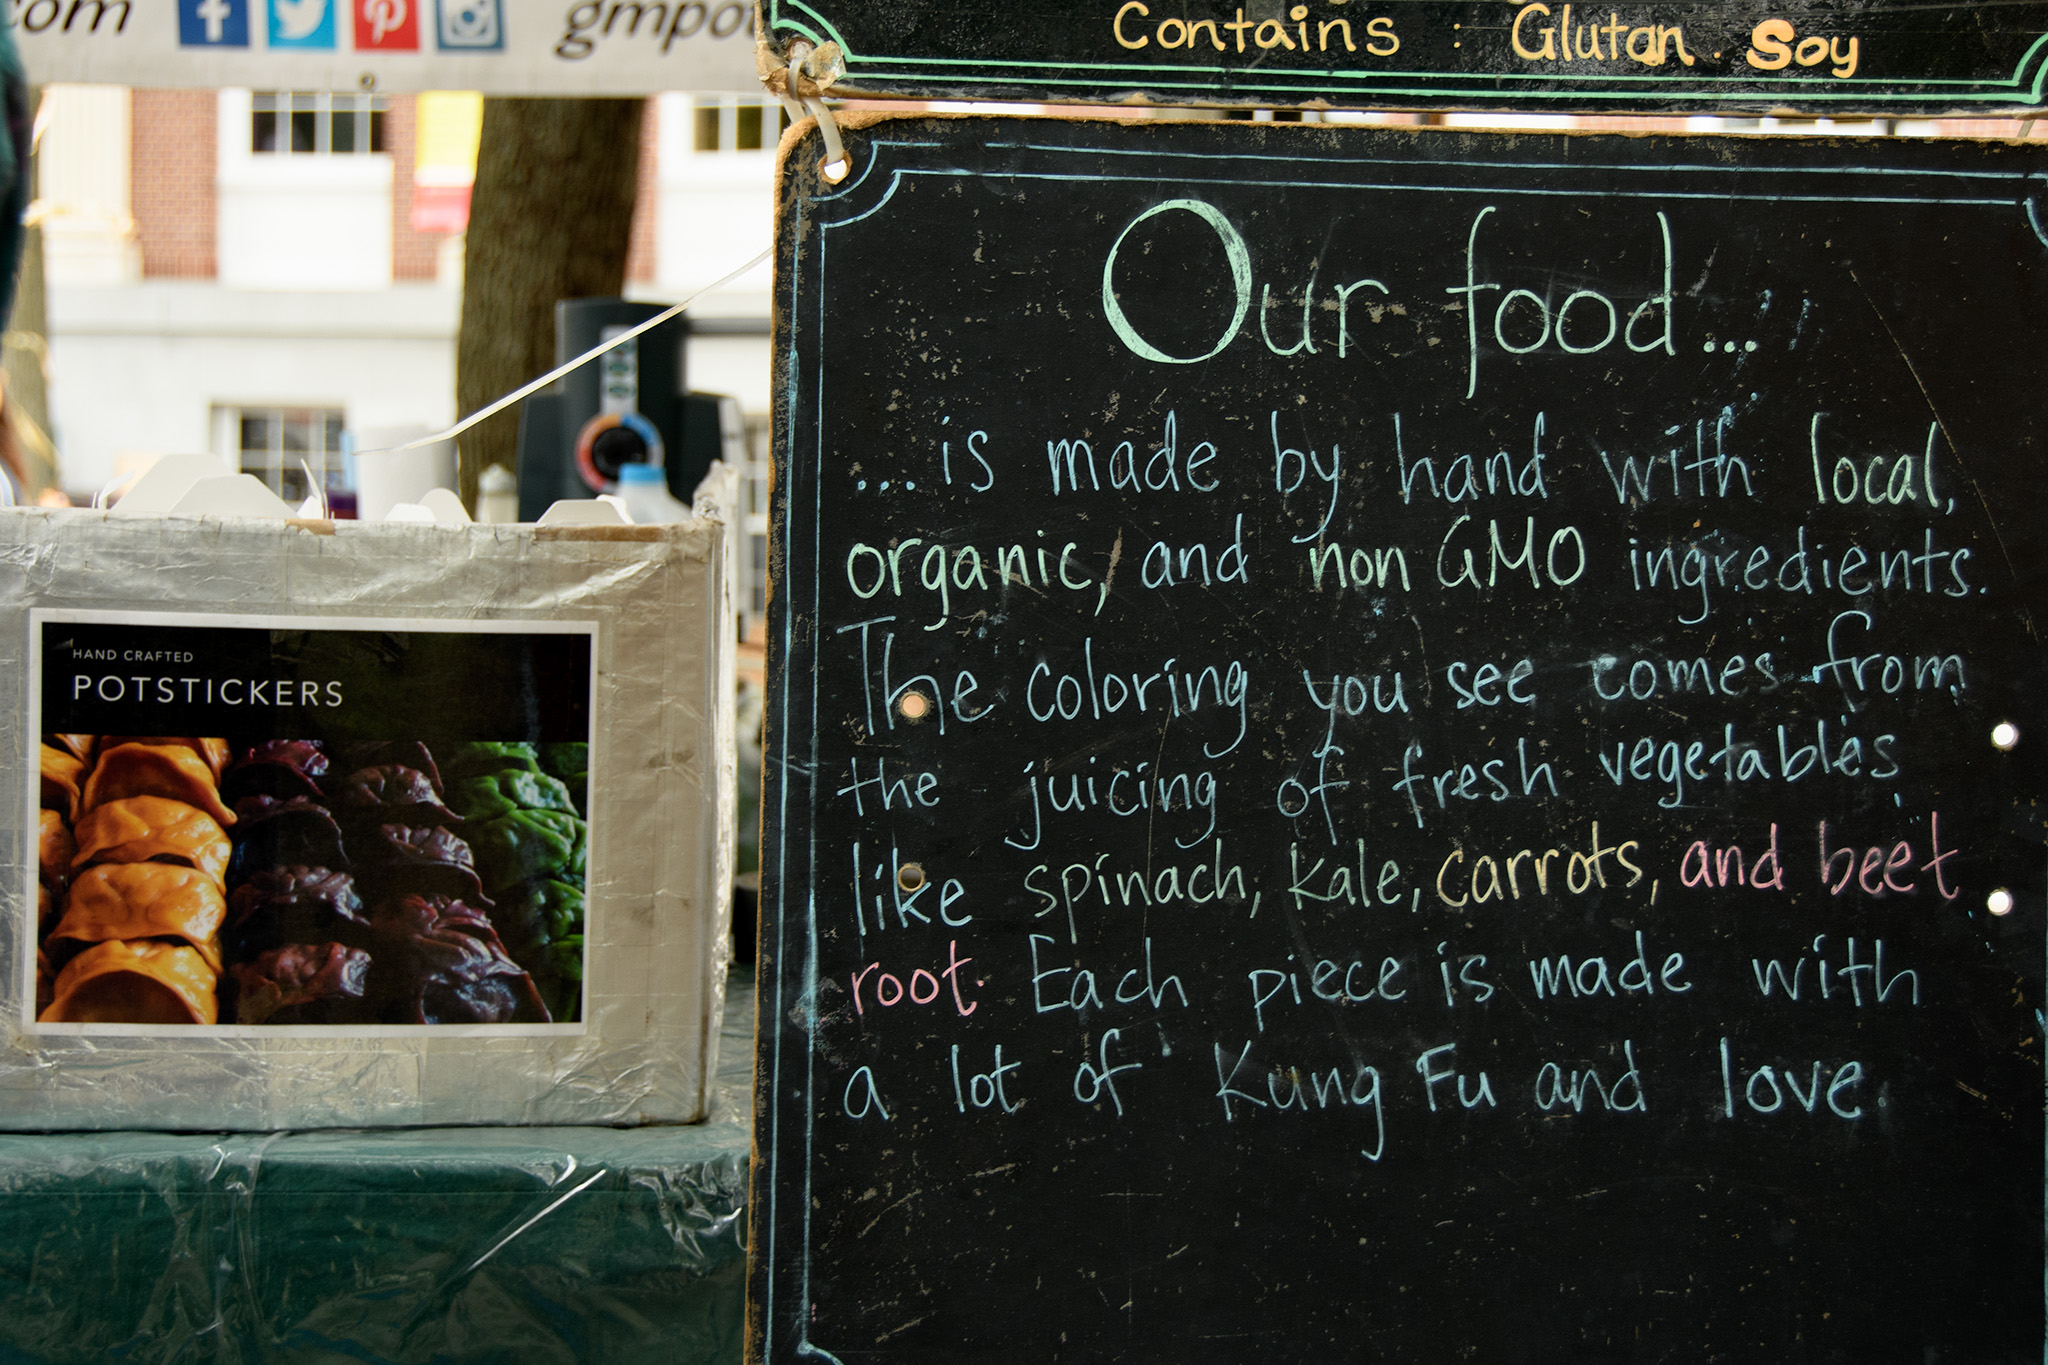 Contains : Glutan . Soy
HAND CRAFTED
POTSTICKERS
Our food...
...is made by hand with local,
organic, and non GMO ingredients.
The coloring you see comes from
the juicing of fresh vegetables
like spinach, kale, carrots, and beet
root. Each piece is made with
a lot of Kung Fu and love.